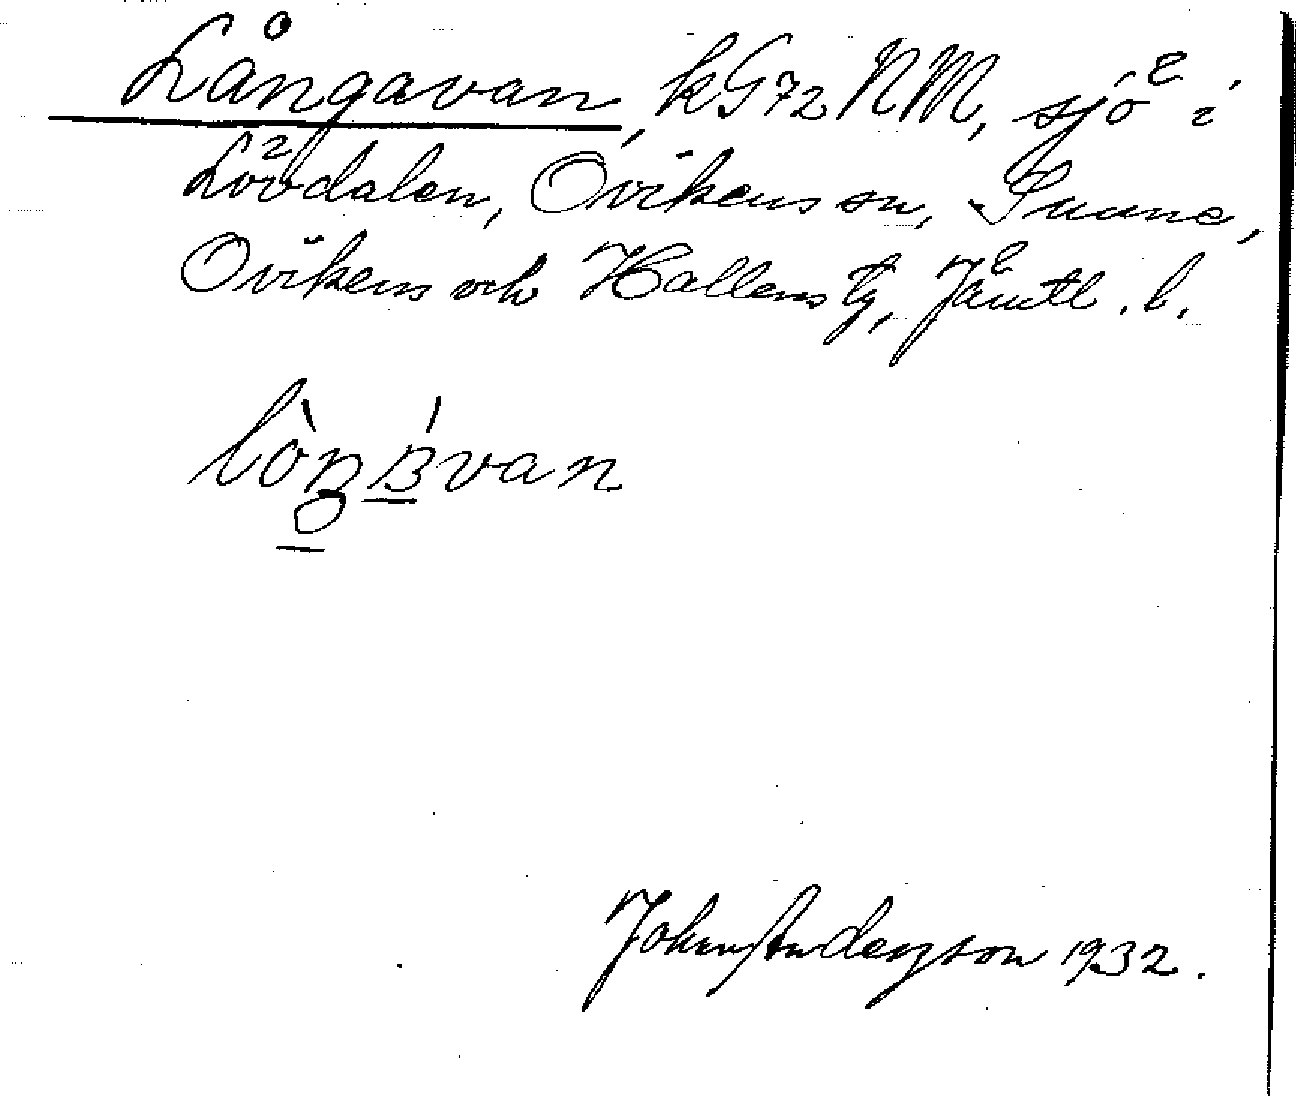 Långavan, kG72 NM, sjö i
Lövdalen, Ovikens sn, Sunne,
Ovikens och Hallens tg, Jämtl. l.
John Anderson 1932.